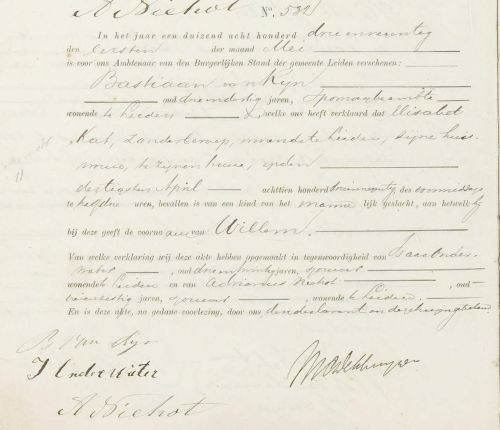 A Niehot No. 582
In het jaar een duizend acht honderd drieenneentig
den eersten der maand Mei
is voor ons Ambtenaar van den Burgerlijken Stand der gemeente Leiden verschenen:
Bastiaan van Rijn
oud drieendertig jaren, Spoorwegbeambte
wonende te Leiden, welke ons heeft verklaard dat Elisabet
Kat, zonder beroep, wonende te Leiden, zijne huis-
vrouw, te zijnen huize, op den
dertigsten April achttien honderd drieennegentig, des voormiddags
te half drie uren, bevallen is van een kind van het mannelijk geslacht, aan hetwelk hij
bij deze geeft de voornaam van Willem.
Van welke verklaring wij deze akte hebben opgemaakt in tegenwoordigheid van Isaac Onder-
water, oud jaren,
wonende te Leiden en van Adrianus Niehot, oud
jaren, wonende te Leiden.
En is deze akte, na gedane voorlezing, door ons, den declarant en de getuigen geteekend
B van Rijn
I Onderwater
A Niehot